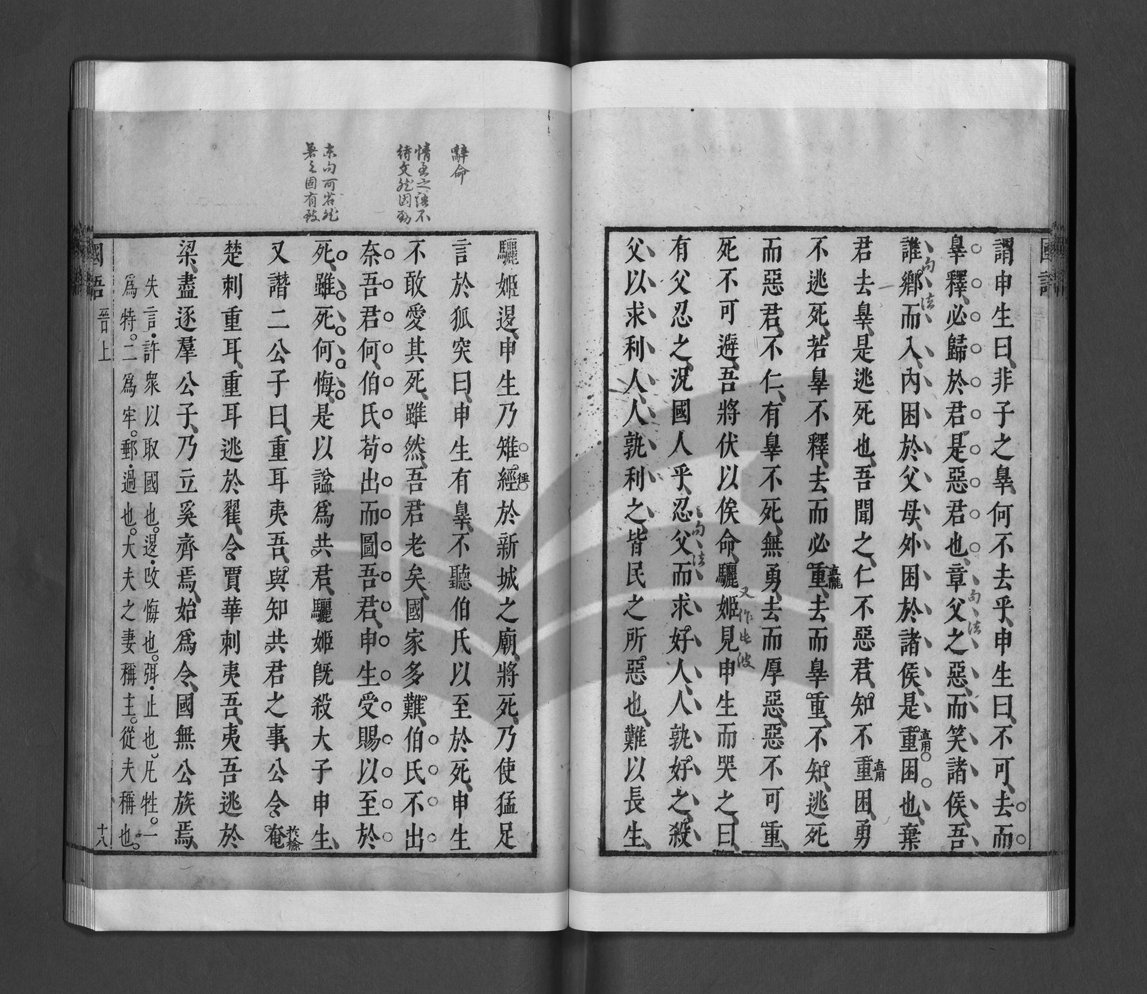 國語
謂申生曰、非子之辠、何不去乎、申生曰、不可、去而
辠釋、必歸於君、是惡君也、章父之惡、而笑諸侯、吾
誰鄉而入、內困於父母、外困於諸侯、是重困也、棄
君去辠、是逃死也、吾聞之、仁不惡君、知不重困、勇
不逃死、若辠不釋、去而必重、去而辠重、不知、逃死
而惡君、不仁、有辠不死、無勇、去而厚惡、惡不可重、
死不可避、吾將伏以俟命、驪姬見申生而哭之、曰、
有父忍之、況國人乎、忍父而求好人、人孰好之、殺
父以求利人、人孰利之、皆民之所惡也、難以長生、
句法
句法
句法
又作此波
辭命
情至之語不
待文
末句可
國有
驪姬退、申生乃雉經於新城之廟、將死、乃使猛足
言於狐突曰、申生有辠、不聽伯氏、以至於死、申生
不敢愛其死、雖然、吾君老矣、國家多難、伯氏不出、
奈吾君何、伯氏苟出而圖吾君、申生受賜以至於
死、雖死何悔、是以謚爲共君、驪姬旣殺大子申生、
又譖二公子曰、重耳夷吾、與知共君之事、公令奄
楚刺重耳、重耳逃於翟、令賈華刺夷吾、夷吾逃於
梁、盡逐羣公子、乃立奚齊焉、始爲令、國無公族焉、
失言·許衆以取國也。退·改悔也。弭·止也。凡牲。一
爲特。二爲牢。郵·過也。大夫之妻稱主。從夫稱也。
國語 晉上 十八